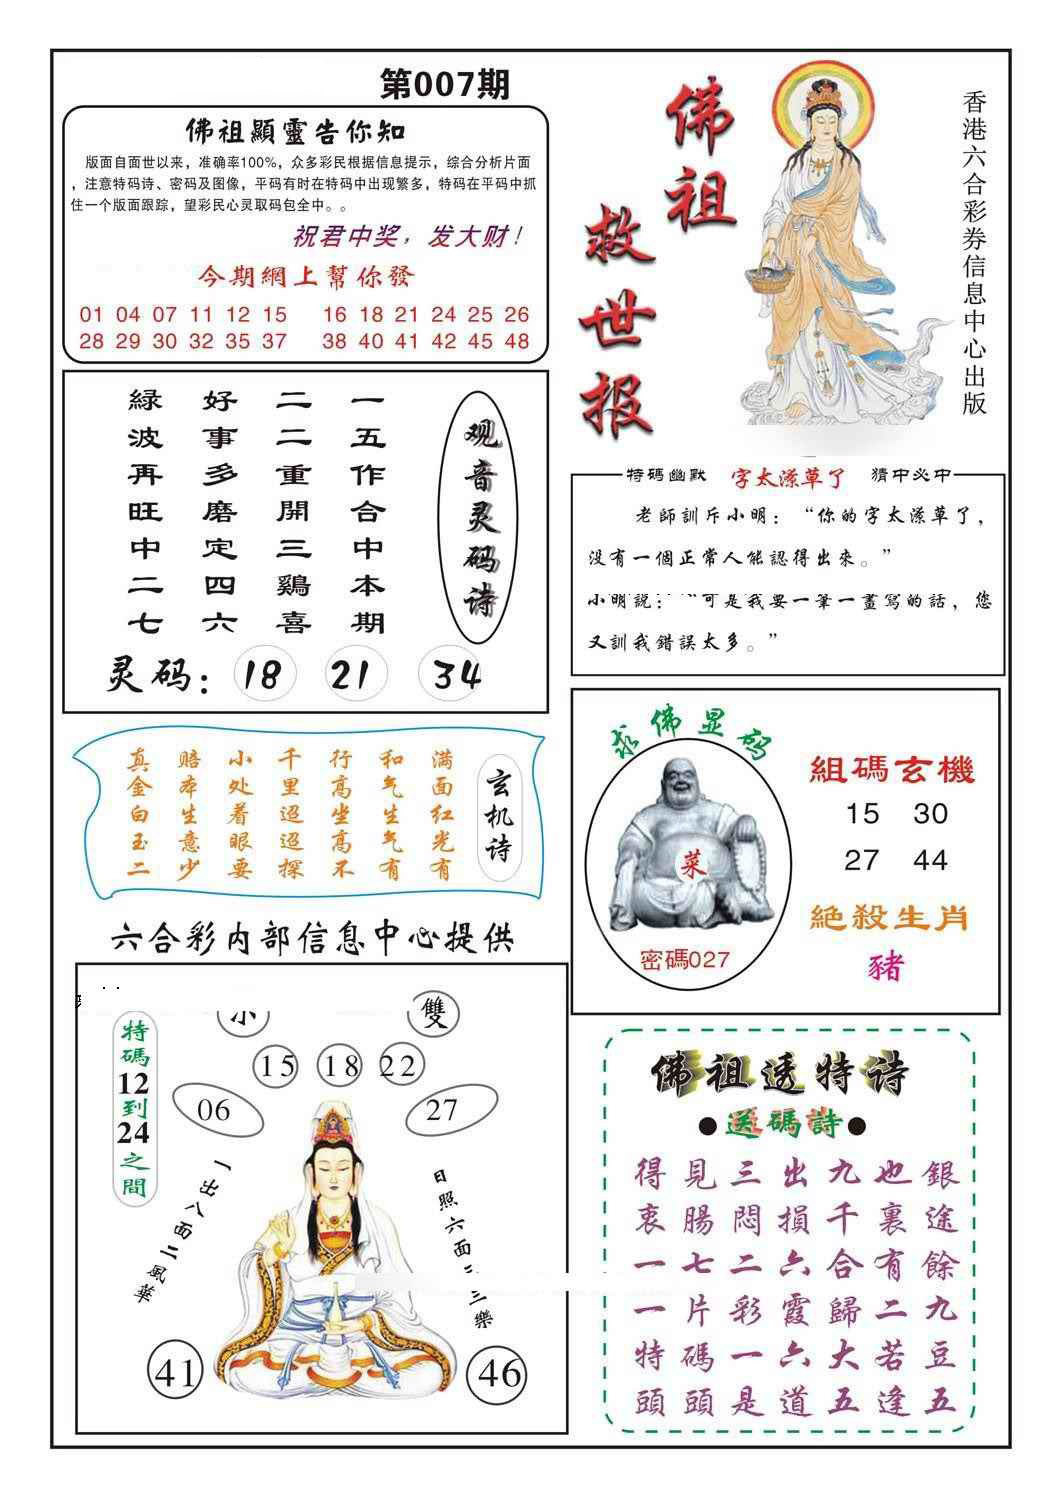 第007期
佛祖顯靈告你知
版面自面世以来，准确率100%，众多彩民根据信息提示，综合分析片面
，注意特码诗、密码及图像，平码有时在特码中出现繁多，特码在平码中抓
住一个版面跟踪，望彩民心灵取码包全中。。
祝君中奖，发大财！
今期網上幫你發
01 04 07 11 12 15 16 18 21 24 25 26
28 29 30 32 35 37 38 40 41 42 45 48
佛祖
救世报
香港六合彩券信息中心出版
观音灵码诗
一五作合中本期
二二重開三鷄喜
好事多磨定四六
緑波再旺中二七
灵码：18 21 34
特碼幽默 字太潦草了 猜中必中
老師訓斥小明：“你的字太潦草了，
没有一個正常人能認得出來。”
小明説：“可是我要一筆一畫寫的話，您
又訓我錯誤太多。”
玄机诗
满面红光有
和气生气有
行高坐高不
千里迢迢探
小处着眼要
赔本生意少
真金白玉二
求佛显码
菜
密碼027
組碼玄機
15 30
27 44
絶殺生肖
豬
六合彩内部信息中心提供
雙
特碼12到24之間
15 18 22
06 27
一出八面二風華
日照六面三樂
41 46
佛祖透特诗
●送碼詩●
得見三出九也銀
衷腸悶損千裏途
一七二六合有餘
一片彩霞歸二九
特碼一六大若豆
頭頭是道五逢五